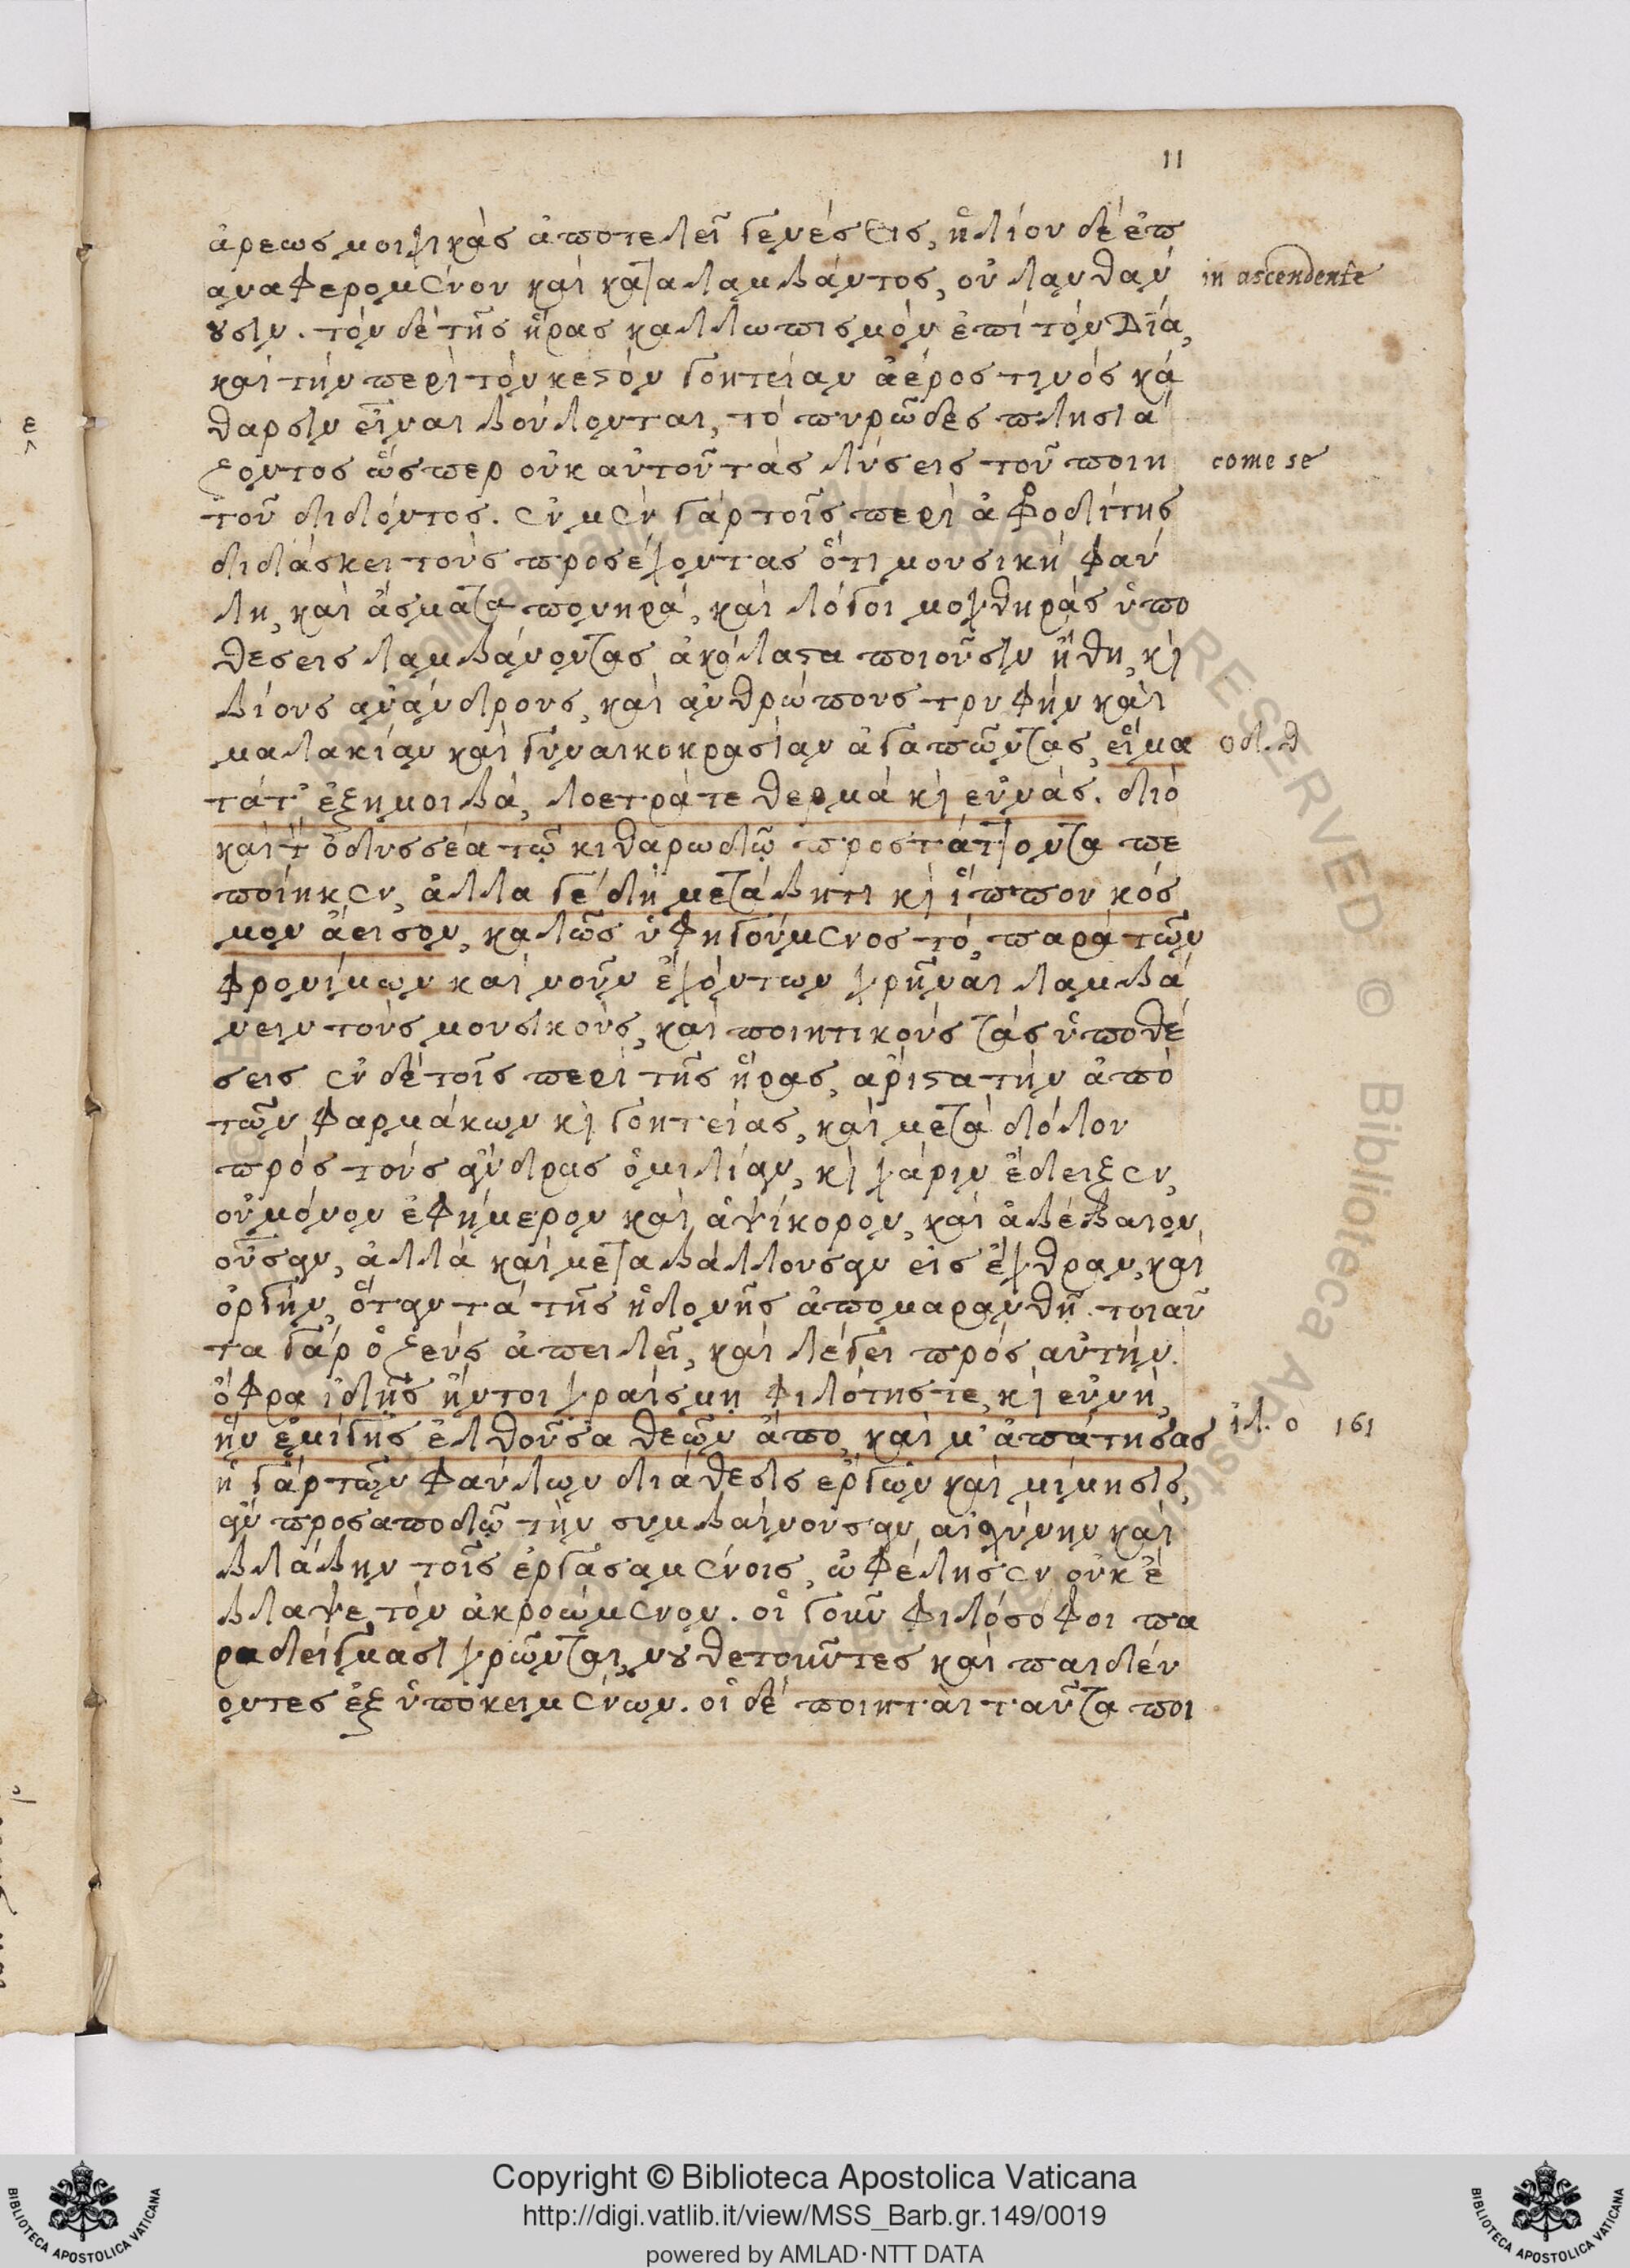 11
ἄρεως μοιχικὰς ἀποτελεῖ γενέσεις, ἡλίου δὲ ἐπ
αναφερομένου καὶ καταλαμβάντος, οὐ λανθαν́
in ascendente
ουσιν. τὸν δὲ τῆς ἥρας καλλωπισμὸν ἐπὶ τὸν Δία,
καὶ τὴν περὶ τὸν κεστὸν γοητείαν ἀέρος τινός κά
θαρσιν εἶναι βούλονται, τὸ πυρῶδες πλησιά
ζοντος ὥσπερ οὐκ αὐτοῦ τὰς λύσεις τοῦ ποιη
come se
τοῦ διδόντος. ἐν μὲν γὰρ τοῖς περὶ ἀφροδίτης
διδάσκει τοὺς προσέχοντας ὅτι μουσικὴ φαύ
λη, καὶ ἄσματα πονηρά, καὶ λόγοι μοχθηρὰς ὑπο
θεσεις λαμβάνοντας ἀκόλαστα ποιοῦσιν ἤθη, κὶ
βίους ἀνάνδρους, καὶ ἀνθρώπους τρυφὴν καὶ
μαλακίαν καὶ γυναικοκρασίαν ἀγαπῶντας, εἵμα
οδ. θ
τά τ' ἐξημοιβά, λοετρά τε θερμά κὶ εὐνάς. διὸ
καὶ τ̀ ὀδυσσέα τῷ κιθαρωδῷ προστάττοντα πε
ποίηκεν, ἄλλα γε δὴ μετάβηθι κὶ ἵππου κόσ
μον ἄεισον, καλῶς ὑφηγούμενος τὸ, παρὰ τῶν
φρονίμων καὶ νοῦν ἐχόντων χρῆναι λαμβά
νειν τοὺς μουσικοὺς, καὶ ποιητικούς τὰς ὑποθέ
σεις ἐν δὲ τοῖς περὶ τῆς ἥρας, ἄριστα τὴν ἀπὸ
τῶν φαρμάκων κὶ γοητείας, καὶ μετὰ δόλου
πρὸς τοὺς ἄνδρας ὁμιλίαν, κὶ χάριν ἔδειξεν,
οὐ μόνον ἐφήμερον καὶ ἁψίκορον, καὶ ἀβέβαιον
οὖσαν, ἀλλὰ καὶ μεταβάλλουσαν εἰς ἔχθραν, καὶ
ὀργήν, ὅταν τὰ τῆς ἡδονῆς ἀπομαρανθῇ. τοιαῦ
τα γὰρ ὁ ζεὺς ἀπειλεῖ, καὶ λέγει πρὸς αὐτὴν.
ὄφρα ἰδῇς ἤν τοι χραίσμῃ φιλότης τε, κὶ εὐνή,
ἣν ἐμίγης ἐλθοῦσα θεῶν ἄπο, καὶ μ' ἀπάτησας
ἰλ. ο 161
ἡ γὰρ τῶν φαύλων διάθεσις ἔργων καὶ μίμησις,
ἂν προσαποδῶ τὴν συμβαίνουσαν αἰσχύνην καὶ
βλάβην τοῖς ἐργασαμένοις, ὠφέλησεν οὐκ ἔ
βλαψε τὸν ἀκροώμενον. οἱ γοῦν φιλόσοφοι πα
ραδείγμασι χρῶνται, νουθετοῦντες καὶ παιδεύ
οντες ἐξ ὑποκειμένων. οἱ δὲ ποιηταὶ ταῦτα ποι
Copyright © Biblioteca Apostolica Vaticana
http://digi.vatlib.it/view/MSS_Barb.gr.149/0019
powered by AMLAD·NTT DATA